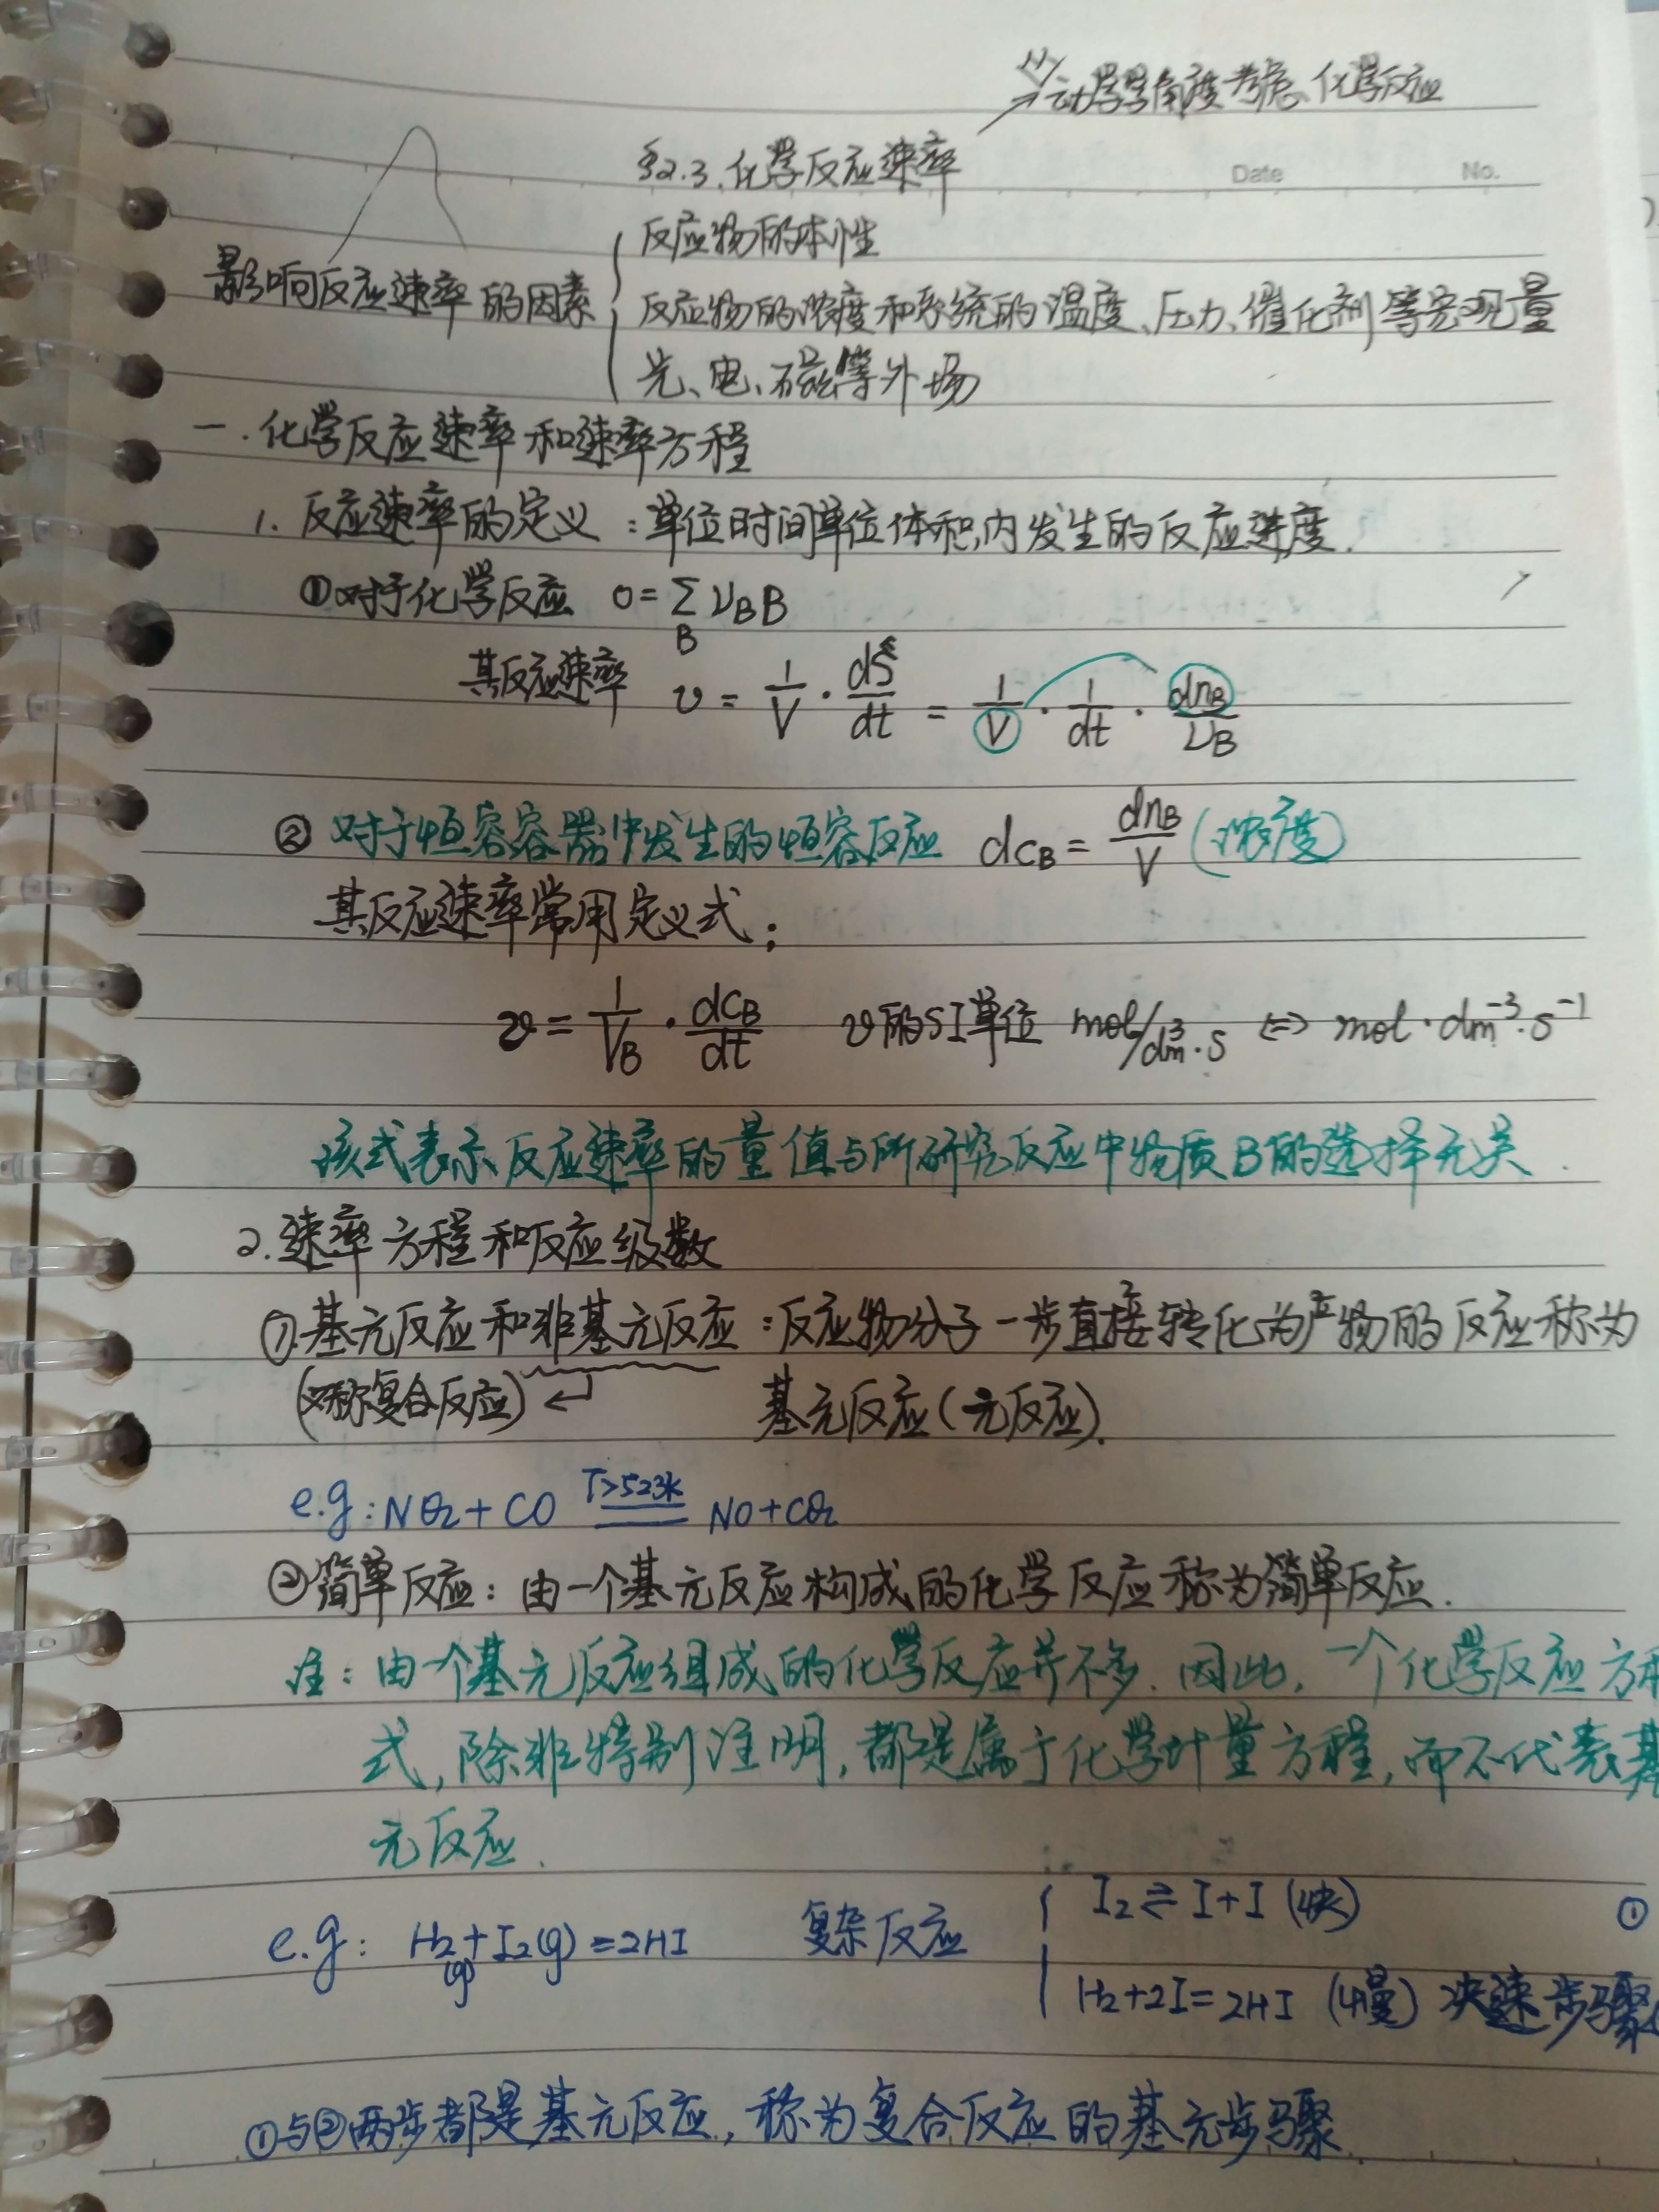 →动力学角度考虑化学反应
§2.3.化学反应速率
Date No.
反应物的本性
影响反应速率的因素
反应物的浓度和系统的温度、压力、催化剂等宏观量
光、电、磁等外场
一.化学反应速率和速率方程
1. 反应速率的定义:单位时间单位体积内发生的反应进度.
①对于化学反应 0=∑_B ν_B B
其反应速率 v = 1/V · dξ/dt = 1/V · 1/dt · dn_B/ν_B
② 对于恒容容器中发生的恒容反应 dc_B = dn_B/V (浓度)
其反应速率常用定义式:
v = 1/ν_B · dc_B/dt v的SI单位 mol/dm³·s ⇔ mol·dm⁻³·s⁻¹
该式表示反应速率的量值与所研究反应中物质B的选择无关.
2.速率方程和反应级数
①基元反应和非基元反应:反应物分子一步直接转化为产物的反应称为
(又称复合反应)↵ 基元反应(元反应).
e.g:NO₂+CO T>523K NO+CO₂
②简单反应:由一个基元反应构成的化学反应称为简单反应.
注:由一个基元反应组成的化学反应并不多.因此,一个化学反应方程
式,除非特别注明,都是属于化学计量方程,而不代表基
元反应.
e.g: H₂(g)+I₂(g)=2HI 复杂反应 I₂⇌I+I (快) ①
H₂+2I=2HI (慢) 决速步骤
①与②两步都是基元反应,称为复合反应的基元步骤.